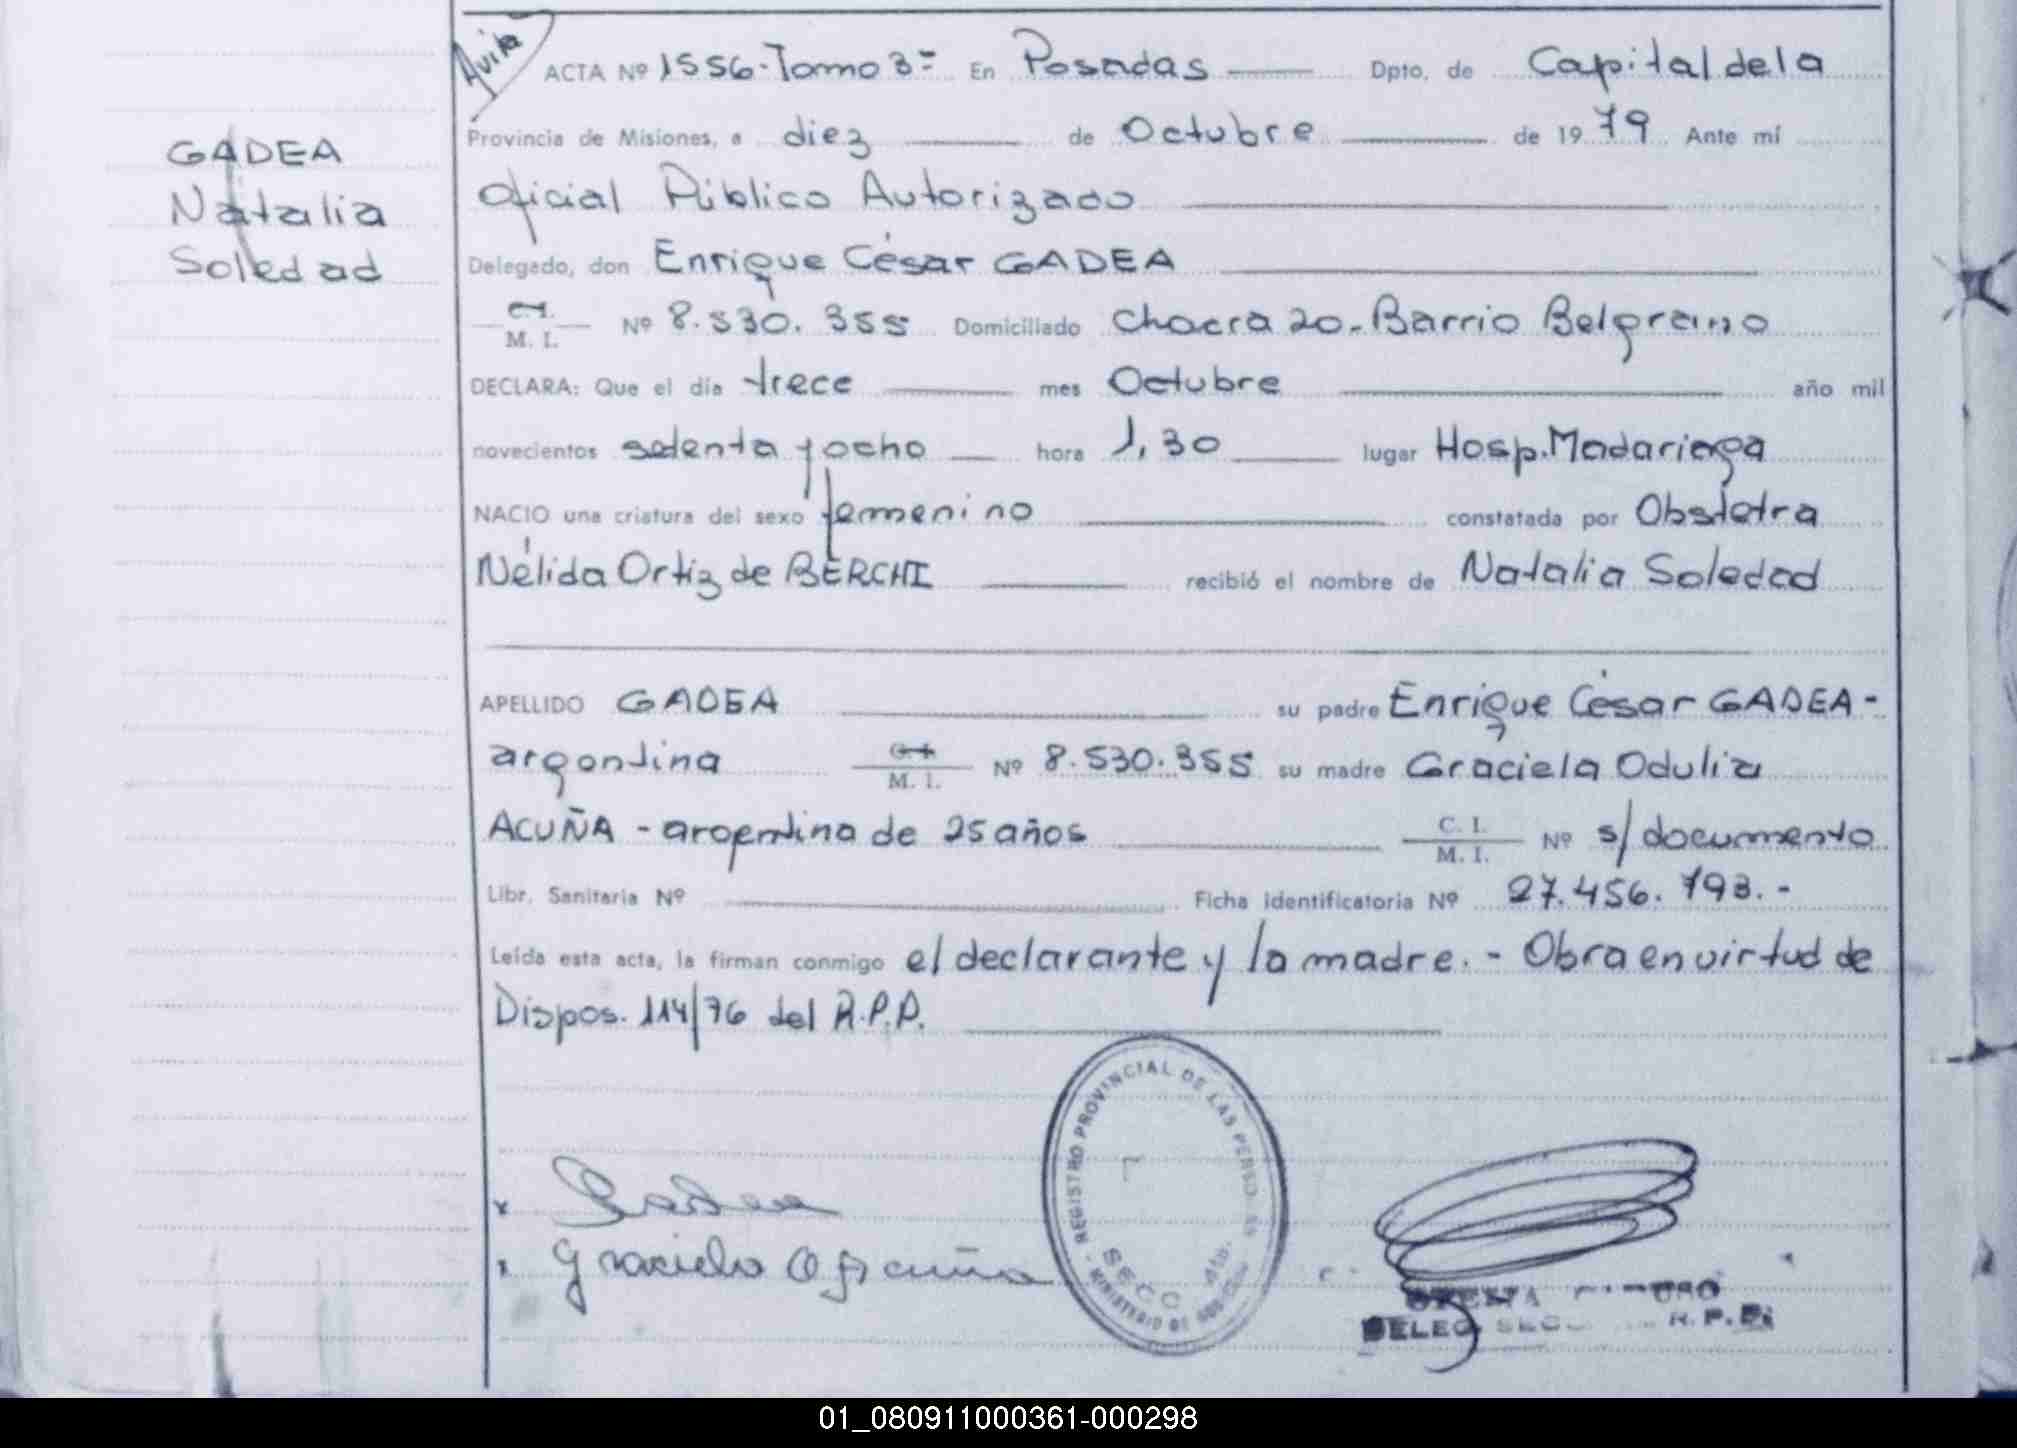 Avita
ACTA Nº 1556-Tomo 3= En Posadas Dpto. de Capital de la
Provincia de Misiones, a diez de Octubre de 1979 Ante mí
GADEA
Natalia
Soledad
Oficial Público Autorizado
Delegado, don Enrique César GADEA
C.I.
M. I. Nº 8.530.355 Domiciliado Chacra 20-Barrio Belgrano
DECLARA: Que el día trece mes Octubre año mil
novecientos setenta y ocho hora 1,30 lugar Hosp. Madariaga
NACIO una criatura del sexo femenino constatada por Obstetra
Nélida Ortiz de BERCHI recibió el nombre de Natalia Soledad
APELLIDO GADEA su padre Enrique César GADEA -
argentina C.I. M. I. Nº 8.530.355 su madre Graciela Odulia
ACUÑA - argentina de 25 años C. I. M. I. Nº s/documento
Libr. Sanitaria Nº Ficha identificatoria Nº 27.456.793.-
Leída esta acta, la firman conmigo el declarante y la madre.- Obra en virtud de
Dispos. 114/76 del R.P.P.
REGISTRO PROVINCIAL DE LAS PERSO
MINISTERIO DE
SECC
x Gadea
x Graciela O Acuña
DELEG. SECC R.P.P.
01_080911000361-000298